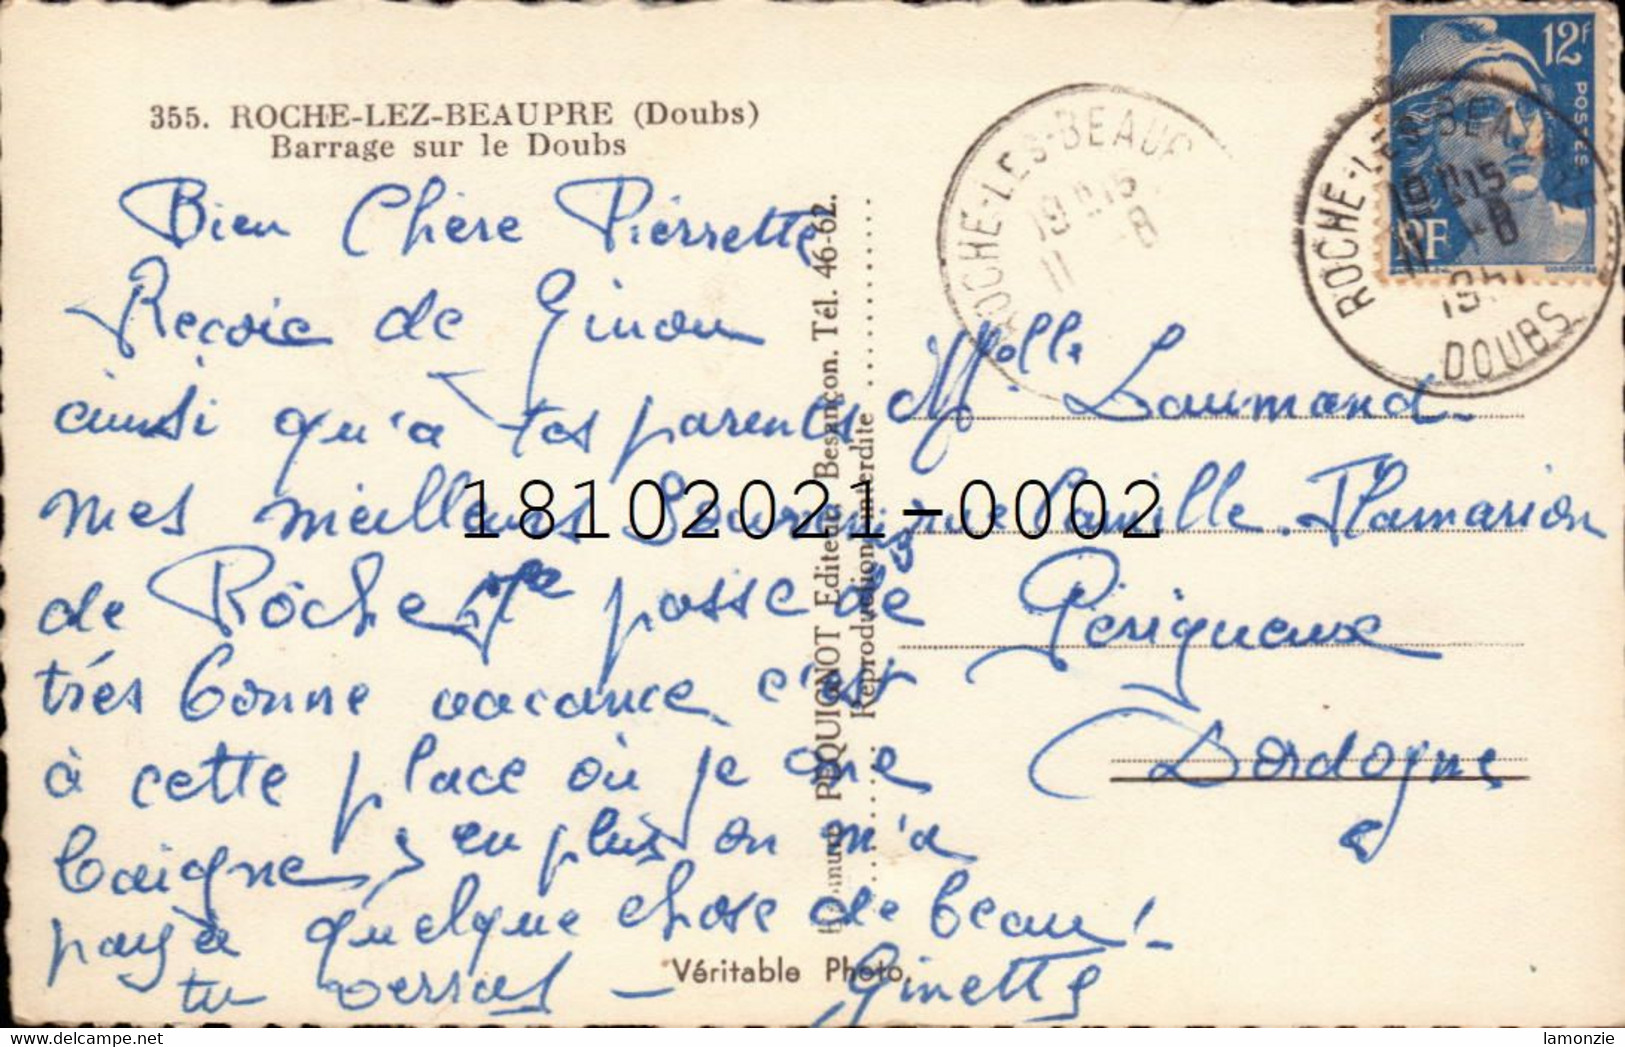 355. ROCHE-LEZ-BEAUPRE (Doubs)
Barrage sur le Doubs
Bien Chère Pierrette
Reçois de Ginou
ainsi qu'a tes parents
mes meilleurs Souvenirs
de Roche Je passe de
très bonne vacance, c'est
à cette place où je me
baigne, en plus on m'a
payée quelque chose de beau!
tu verras - Ginette
Edmund PEQUIGNOT Editeur, Besançon. Tél. 46-62.
Reproduction interdite
Véritable Photo.
Melle Laumond
rue Camille Flamarion
Périgueux
Dordogne
ROCHE-LES-BEAU
19H15
11 -8
12F
POSTES
RF
ROCHE-LES-BEAU
19H15
11 -8
1951
DOUBS
18102021-0002
http://www.delcampe.net
lamonzie